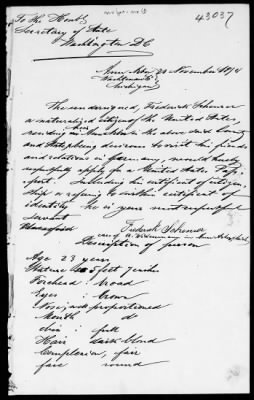 To the Honbl
43037
Secretary of State
Washington D.C
Ann Arbor 20 November 1874
Washtenaw Co
Michigan
The undersigned, Frederick Schmerer
a naturalized citizen of the United States,
residing Ann Arbor in the above said County
and State being desirous to visit his friends
and relations in Germany, would hereby
respectfully apply for a United States Pass-
port. Including his certificate of citizen-
ship & refering to within certificate of
identity he is your most respectful
servant
Frederick Schmerer
care of
in Ann Arbor, Mich
Description of person
Age 23 years
Stature 5 feet inches
Forehead : broad
Eyes : brown
Nose : proportioned
Mouth : d
chin : full
Hair dark blond
Complexion, fair
face round